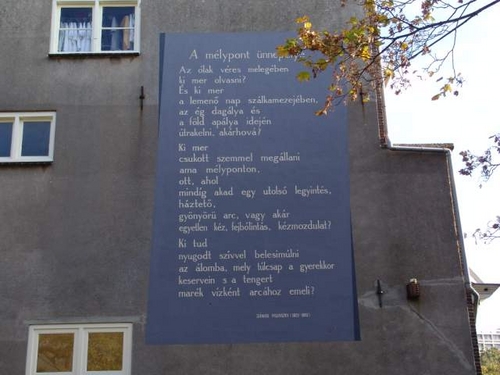 A mélypont ünnepélye
Az ólak véres melegében
ki mer olvasni?
És ki mer
a lemenő nap szálkamezejében,
az ég dagálya és
a föld apálya idején
útrakelni, akárhová?
Ki mer
csukott szemmel megállani
ama mélyponton,
ott, ahol
mindig akad egy utolsó legyintés,
háztető,
gyönyörű arc, vagy akár
egyetlen kéz, fejbólintás, kézmozdulat?
Ki tud
nyugodt szívvel belesimúlni
az álomba, mely túlcsap a gyerekkor
keservein s a tengert
marék vízként arcához emeli?